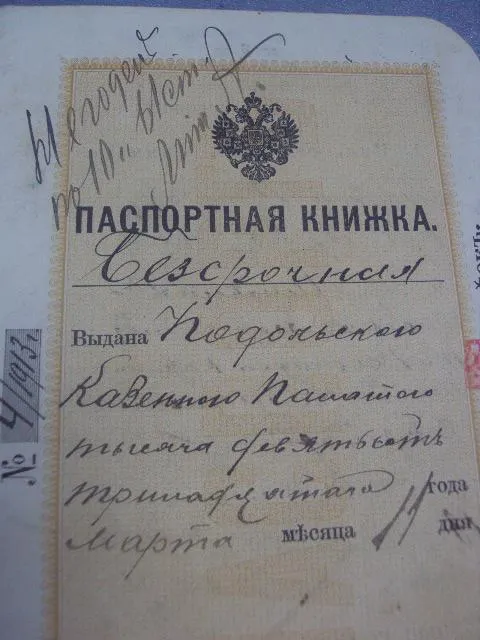 Негоден
по 10"
ПАСПОРТНАЯ КНИЖКА.
Безсрочная
Выдана Подольскою
Казенною Палатою
тысяча девятьсотъ
тринадцатаго года
Марта мѣсяца 11 дня
№ 4/1913 г.